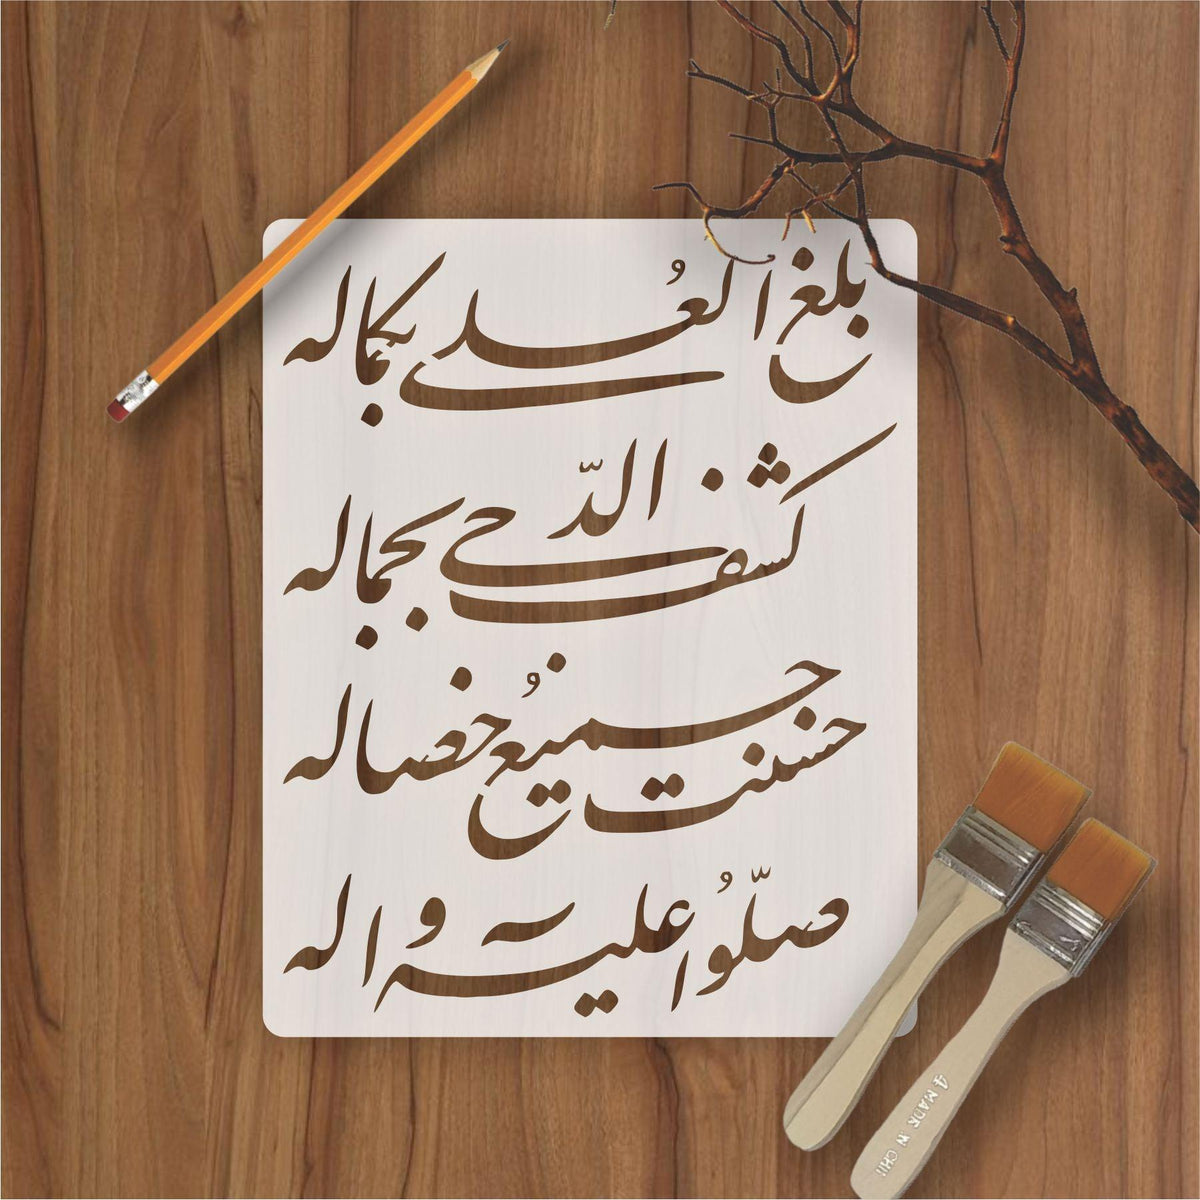 بلغ العُلى بكماله
كشف الدّجى بجماله
حسنت جميعُ خصاله
صلّوُا عليه واله
4 MADE IN CHI